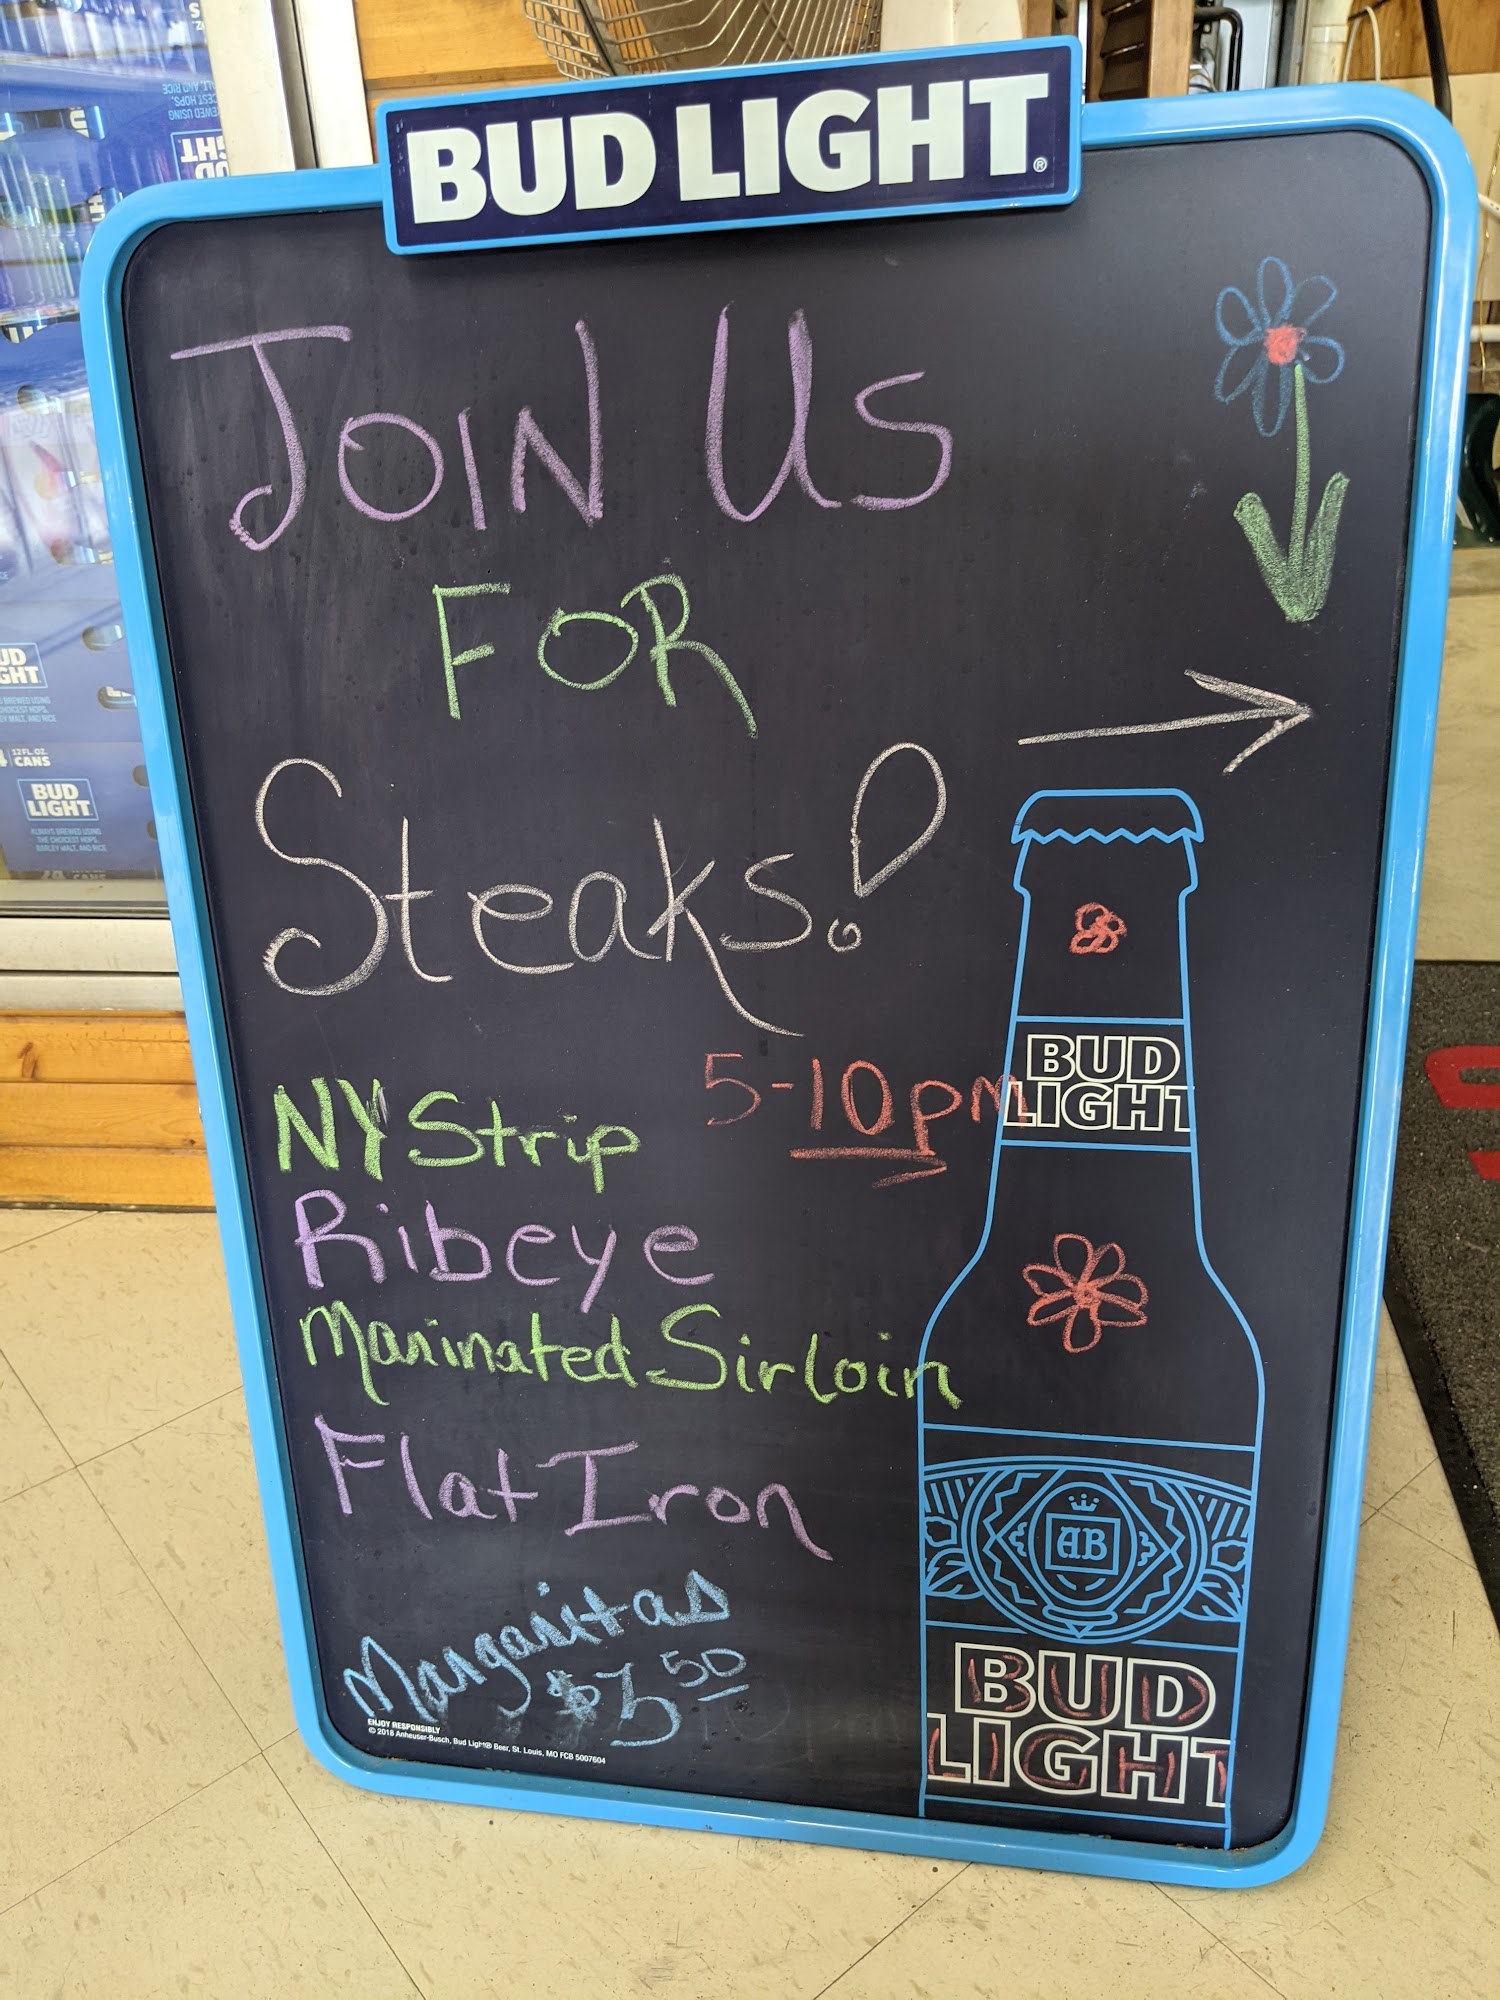 BUD LIGHT®
JOIN US
FOR
Steaks!
5-10pm
NY Strip
Ribeye
Marinated Sirloin
Flat Iron
Margaritas
$3 50
ENJOY RESPONSIBLY
© 2018 Anheuser-Busch, Bud Light® Beer, St. Louis, MO FCB 5007604
BUD
LIGHT
AB
BUD
LIGHT
12 FL. OZ.
CANS
BUD
LIGHT
ALWAYS BREWED USING
THE CHOICEST HOPS,
BARLEY MALT, AND RICE